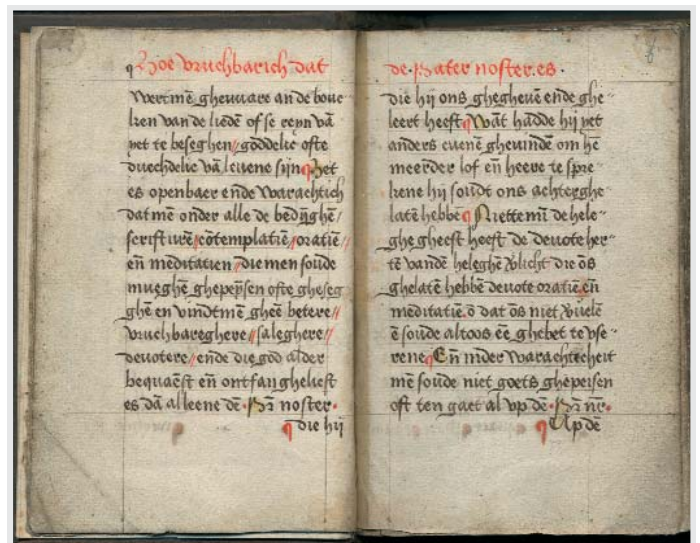 ¶ Hoe vruchbarich dat
wertmē ghewaare an de boue
ken van de liedē of se reyn vā
yet te beseghen // goddelic ofte
duechdelic vā leuene sijn ¶ Het
es openbaer ende warachtich
dat mē onder alle de bedijghē /
scrifturē / cōtemplatiē // oratiē //
en̄ meditatien / die men soude
mueghē ghepeysen ofte gheseg
ghē en vindtmē gheē betere //
vruchbareghere // saleghere //
deuotere // ende die god alder
bequaēst en̄ ontfangheliest
es dā alleene dē · pr̄ noster ·
¶ die hij
de · Pater noster · es ·
die hij ons ghegheuē ende ghe
leert heeft ¶ wāt hadde hij yet
anders cuenē gheuindē om hē
meerder lof en̄ heere te spre
kene hij soudt ons achterghe
latē hebbē ¶ Niettemī de hele
ghe gheest heeft de deuote her
tē vandē heleghē v̄licht die ōs
ghelatē hebbē deuote oratiē en̄
meditatiē. ō dat ōs niet v̄uelē
ē soude altoos eē ghebet te vse
rene ¶ En̄ inder warachticheit
mē soude niet goets ghepeisen
oft ten gaet al vp dē · pr̄ nr̄ ·
¶ Up dē